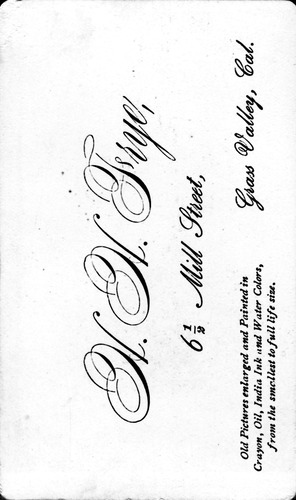 N. N. Frye,
6½ Mill Street,
Grass Valley, Cal.
Old Pictures enlarged and Painted in
Crayon, Oil, India Ink and Water Colors,
from the smallest to full life size.